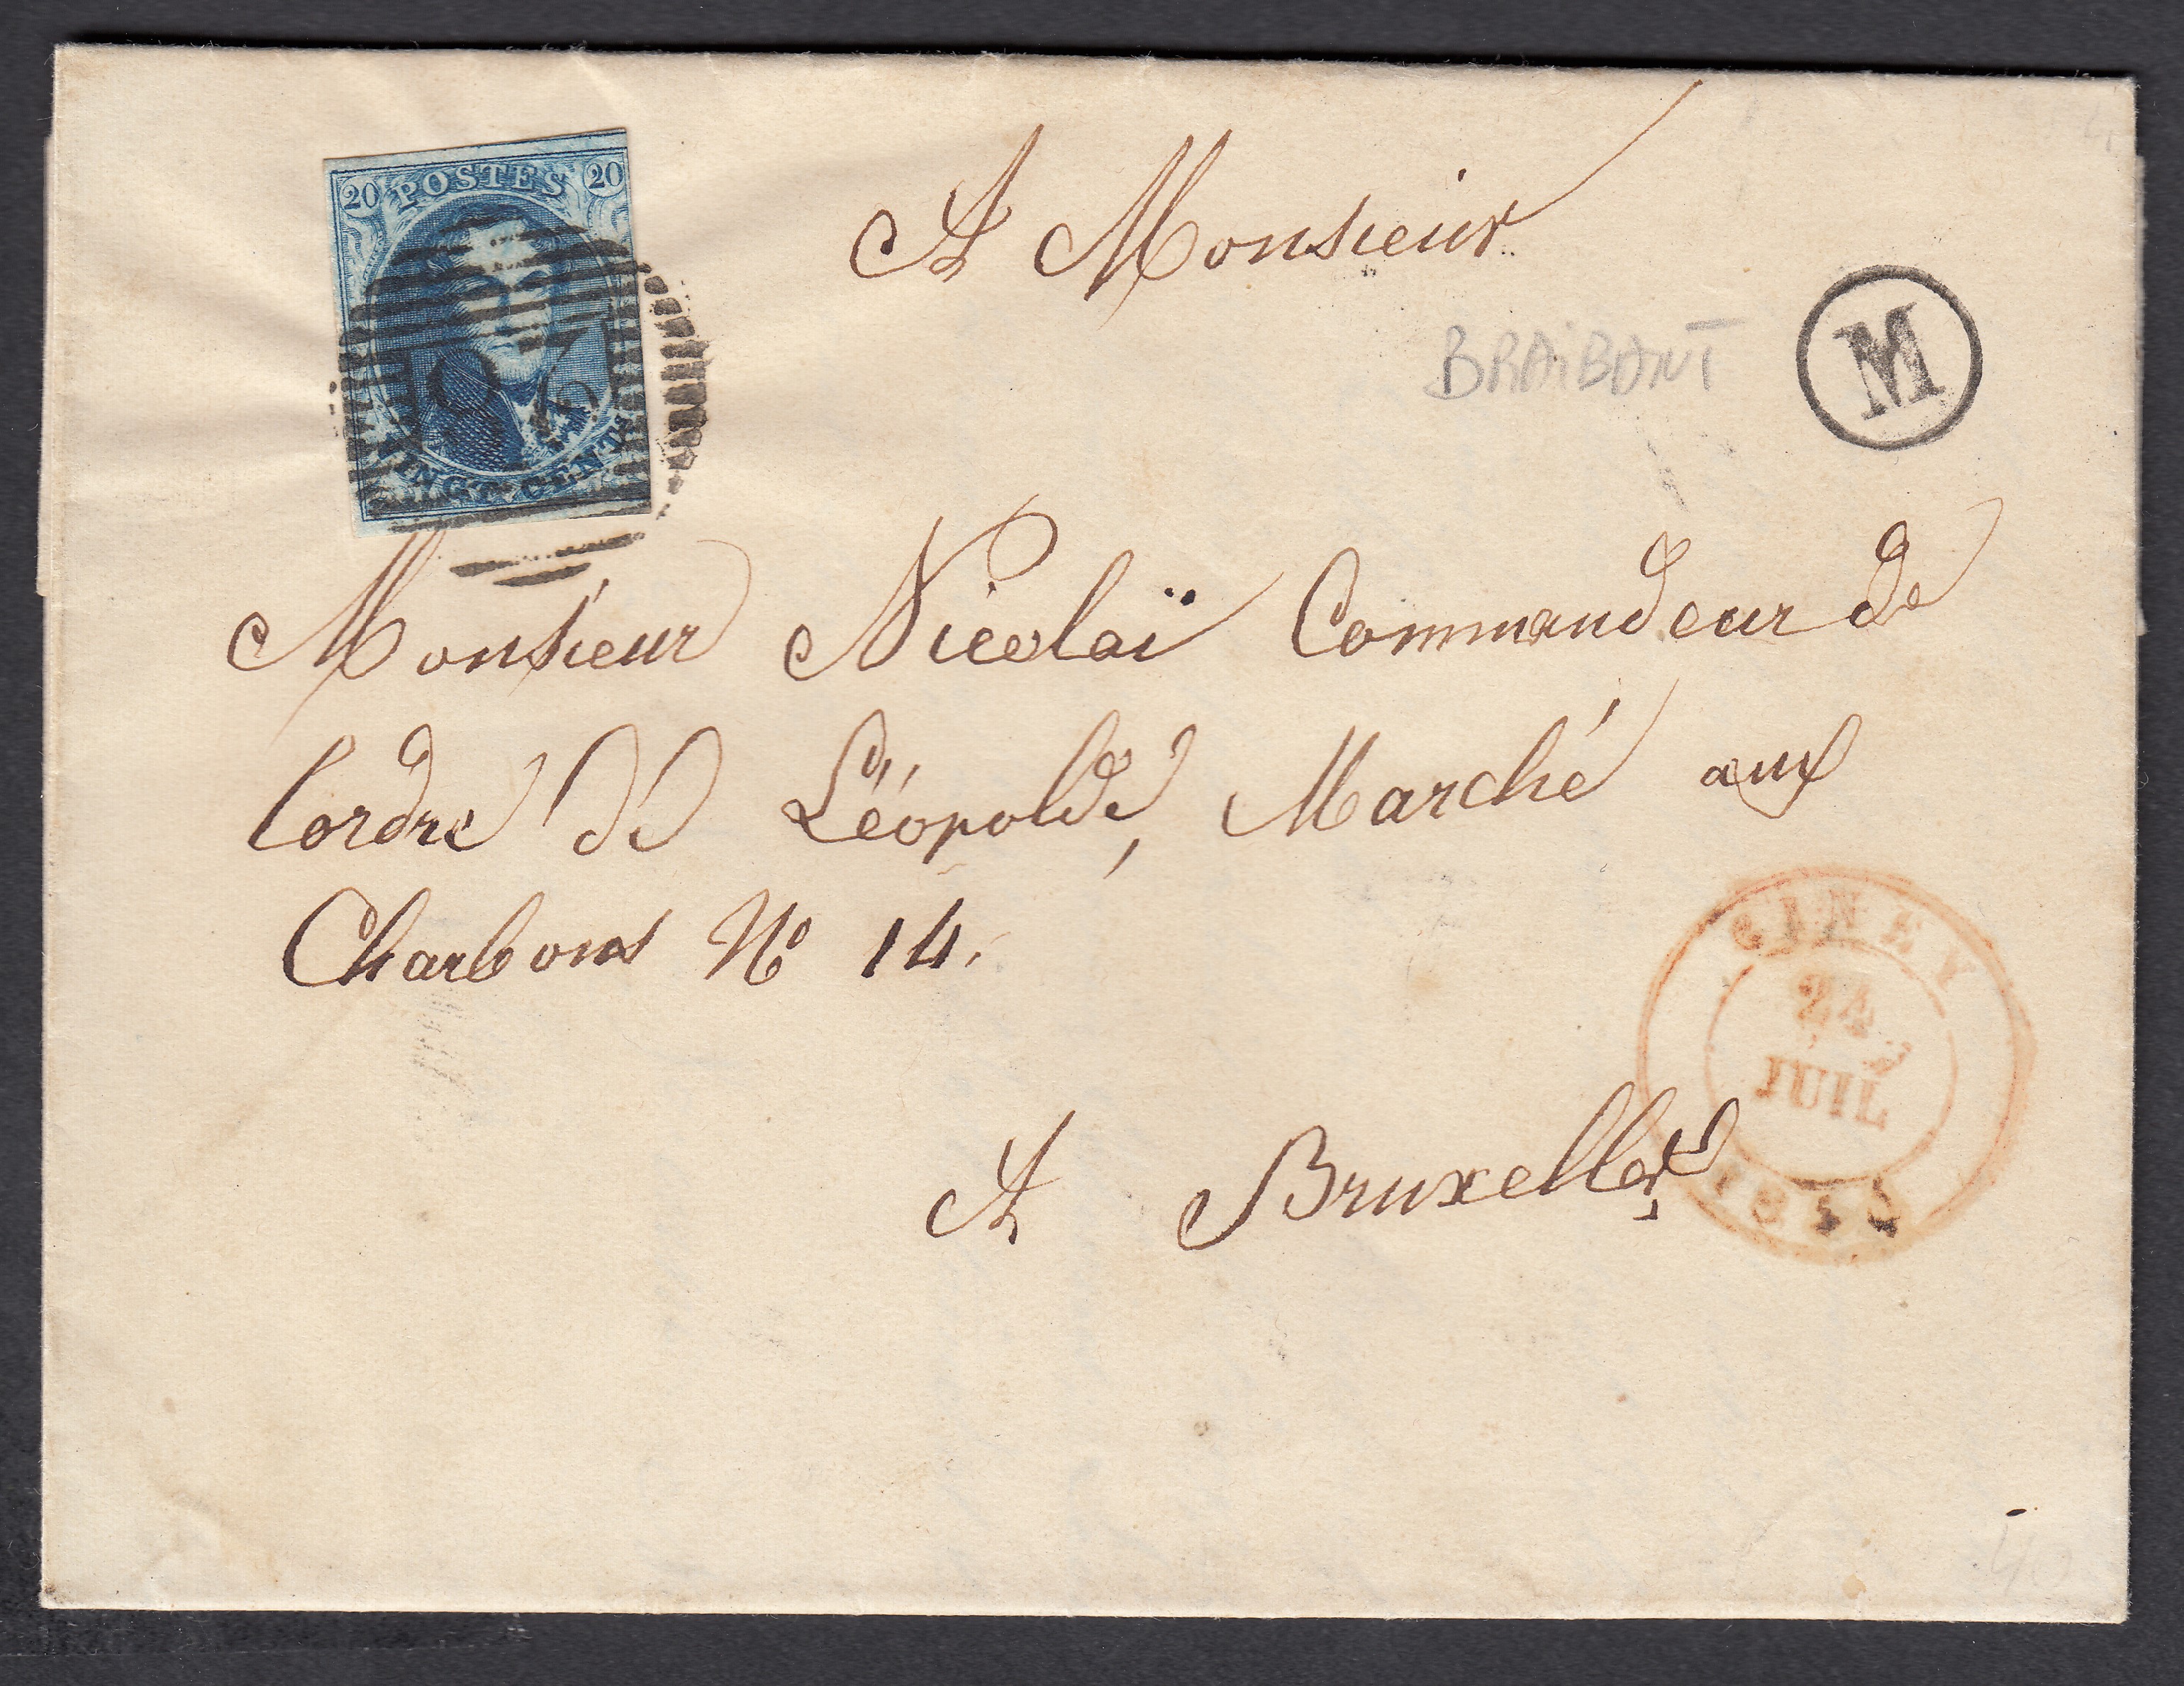 20 POSTES 20
VINGT CENTS
A Monsieur
BRAIBANT
M
Monsieur Nicolaï Commandeur de
l'ordre de Léopold, Marché aux
Charbons N° 14.
CINEY
24
JUIL
A Bruxelles